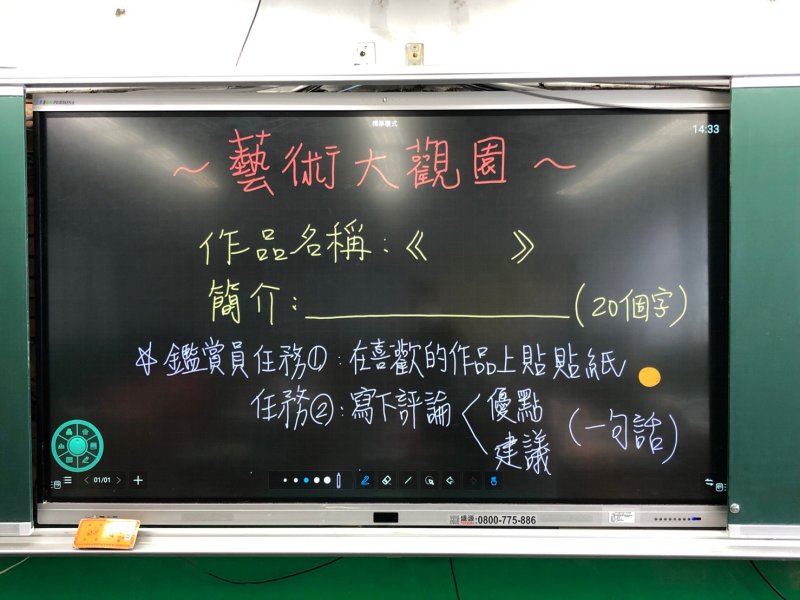 標準模式
14:33
～藝術大觀園～
作品名稱：《　　》
簡介：＿＿＿＿＿＿＿＿＿＿(20個字)
鑑賞員任務①：在喜歡的作品上貼貼紙
任務②：寫下評論＜優點
建議
(一句話)
01/01
0800-775-886